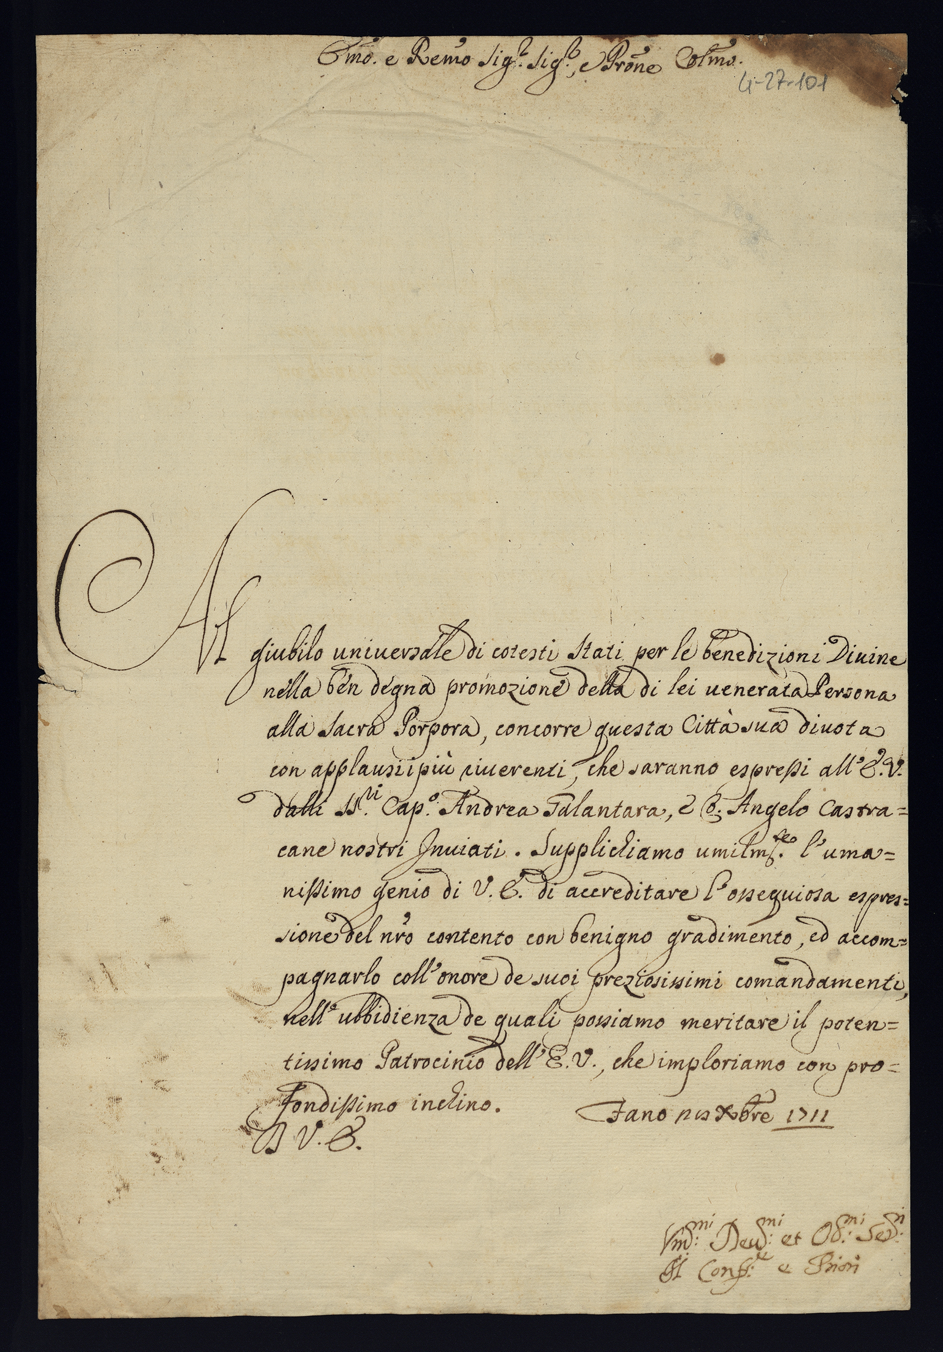 Emõ. e Remõ Sigr. Sigr., e Prõne Colmõ.
4-27-101
Al giubilo universale di cotesti Stati per le benedizioni Divine
nella ben degna promozione della di lei venerata Persona
alla Sacra Porpora, concorre questa Città sua divota
con applausi i più riverenti, che saranno espressi all'E.V.
dalli SS.ri Cap.o Andrea Galantara, e Angelo Castra=
cane nostri Inviati. Supplichiamo umilmte. l'uma=
nissimo genio di V. E. di accreditare l'ossequiosa espres=
sione del nr̃o contento con benigno gradimento, ed accom=
pagnarlo coll'onore de suoi preziosissimi comandamenti,
nell'ubbidienza de quali possiamo meritare il poten=
tissimo Patrocinio dell'E.V., che imploriamo con pro=
fondissimo inchino. Fano Xbre 1711
D V. E.
Vmil.mi Deu.mi et Ob.mi Se.ri
Il Conf.re e Priori